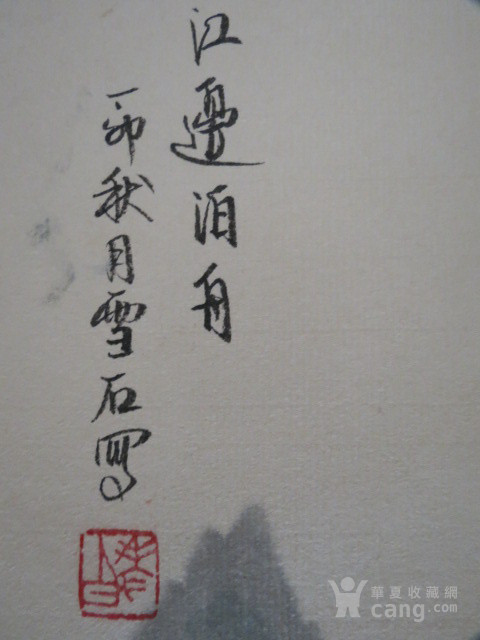 江邊泊舟
卯秋月雪石寫
華夏收藏網
cang.com